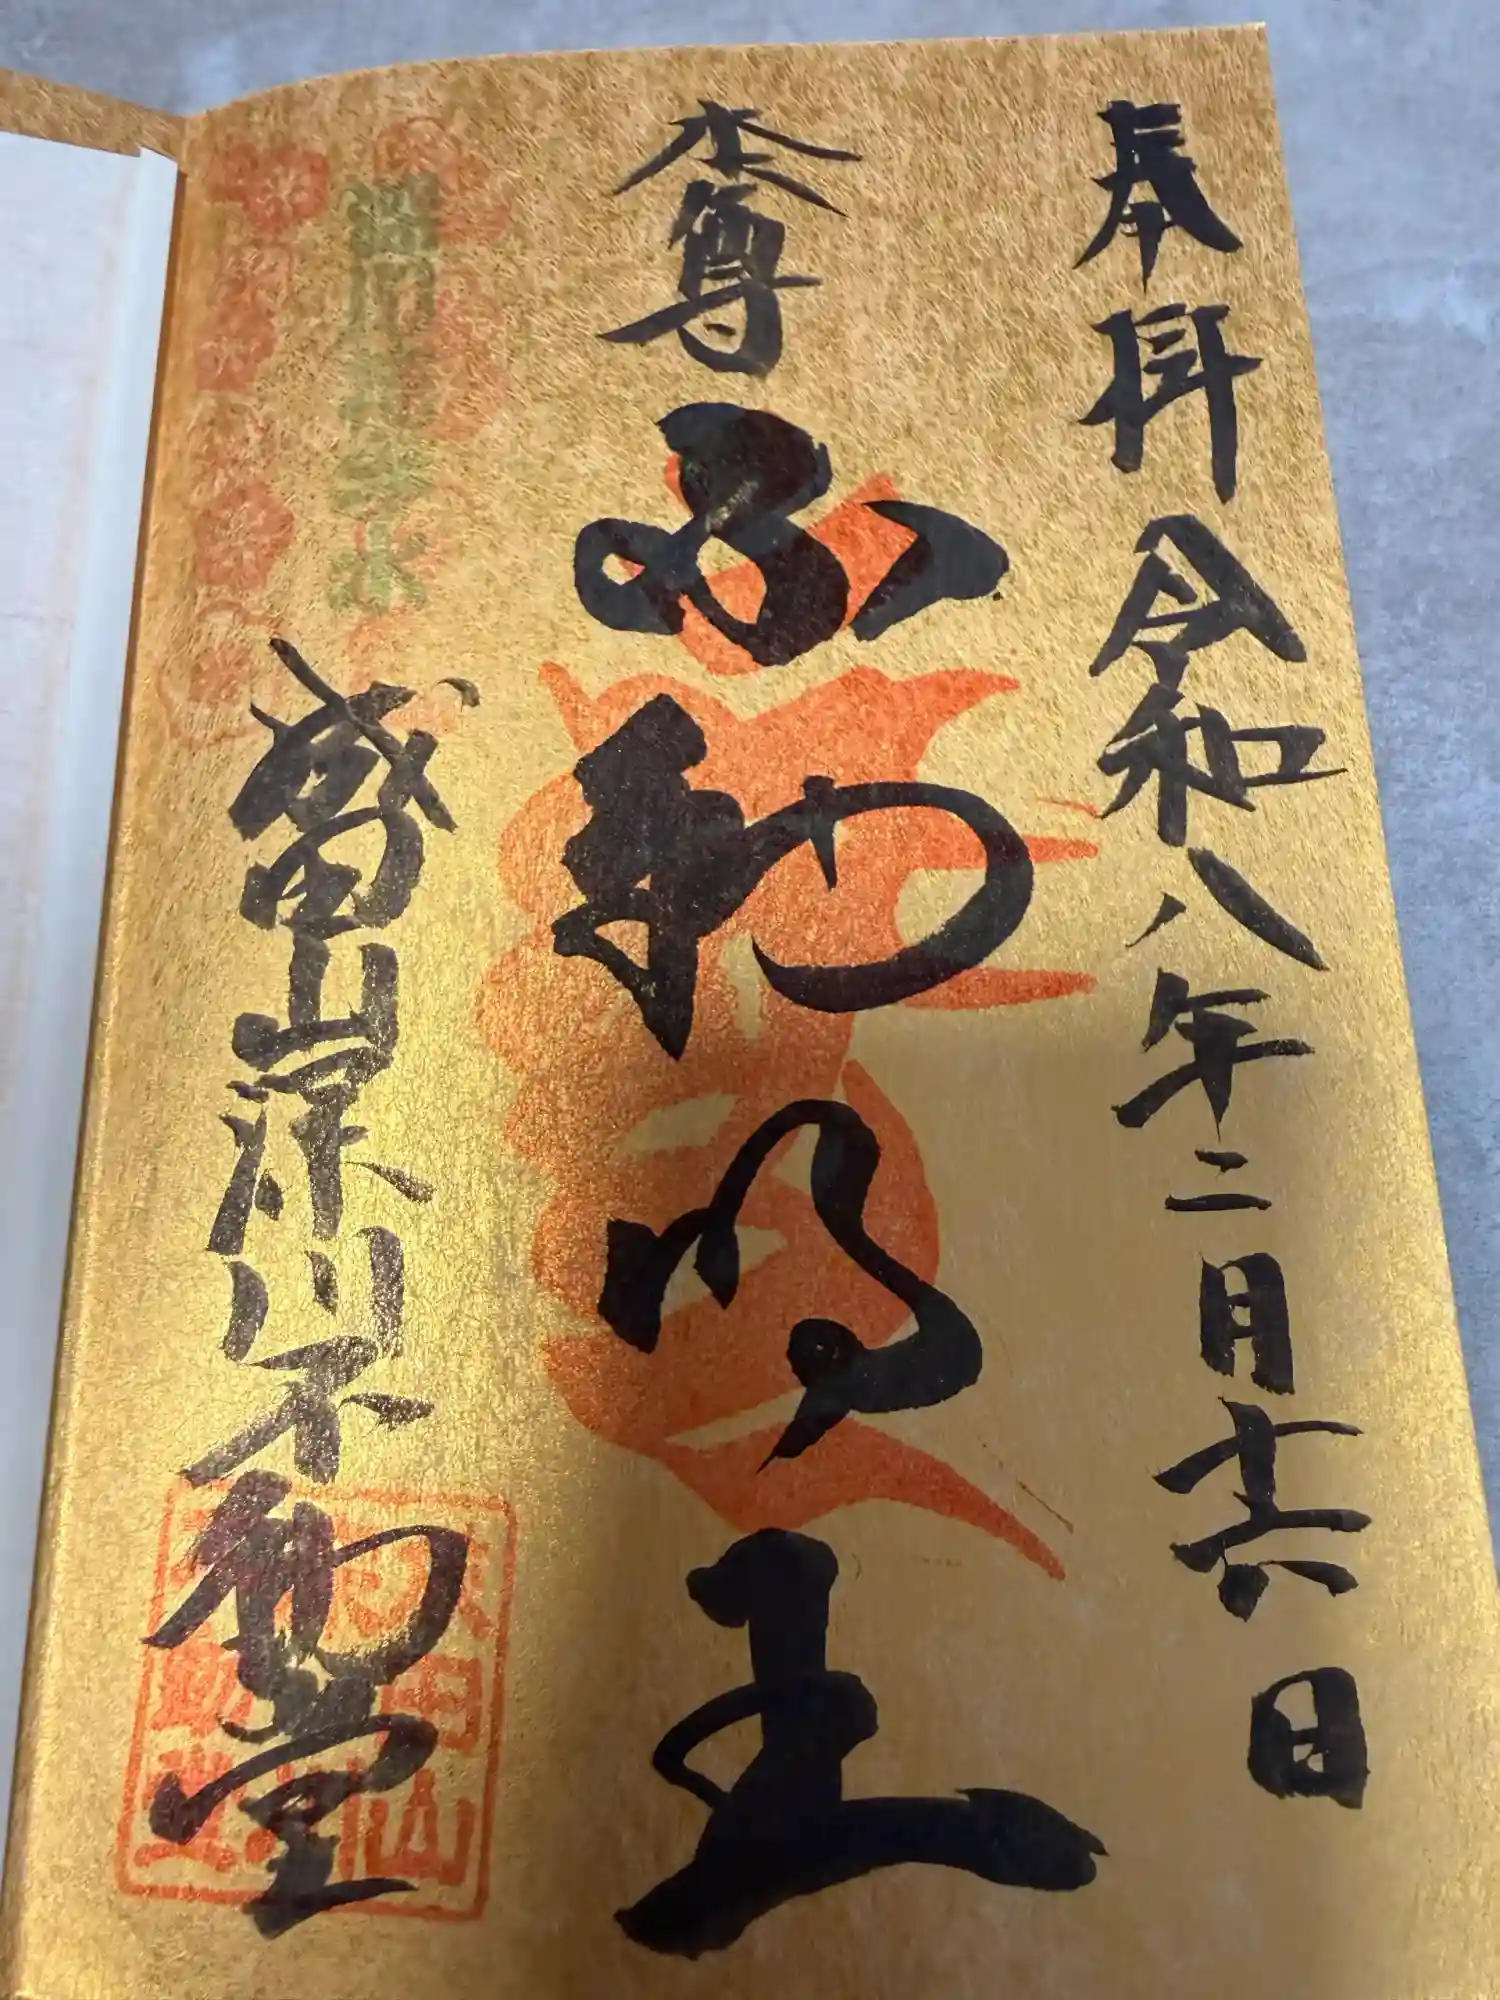 奉拝 令和八年二月十六日
本尊 不動明王
成田山深川不動堂
成田山
不動堂